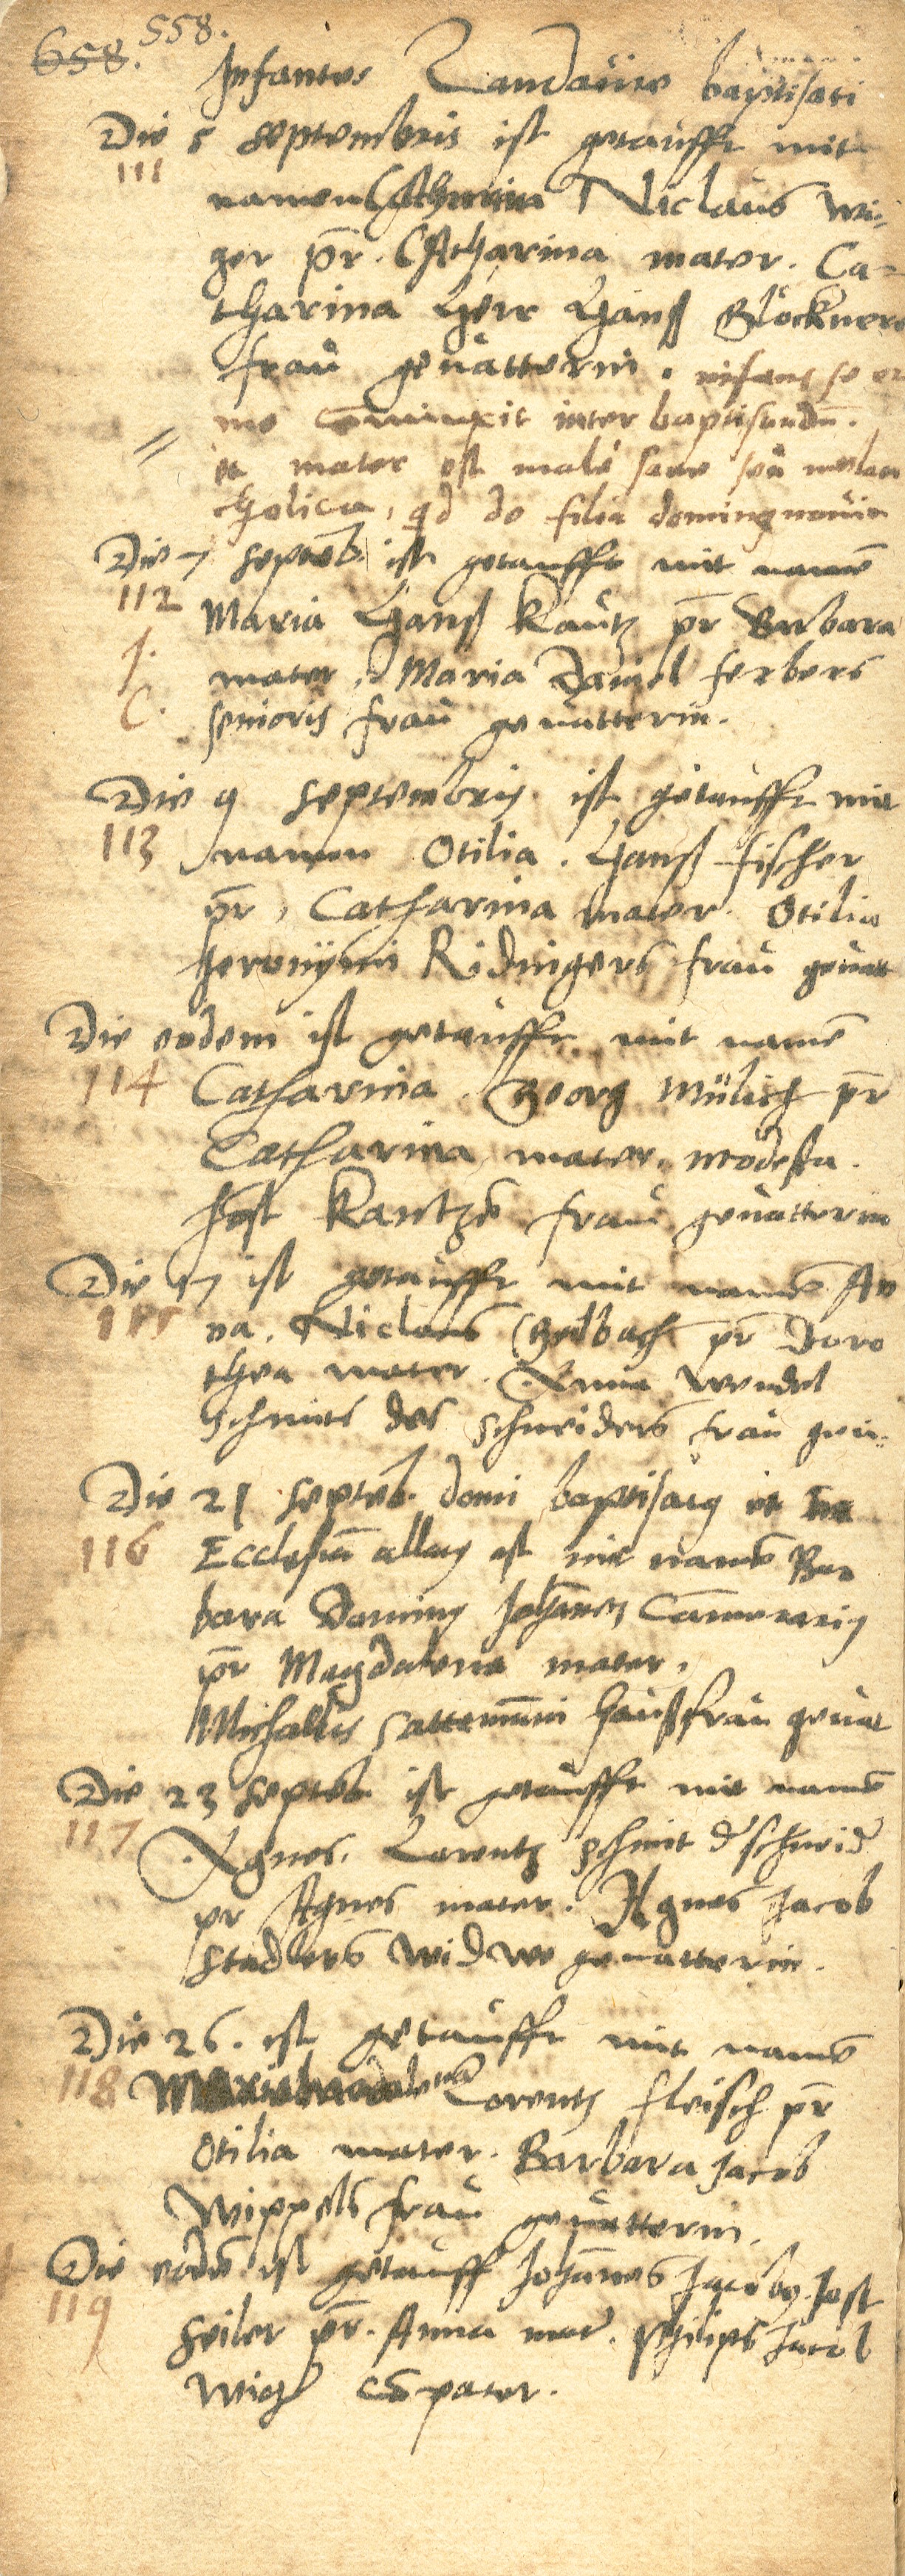 658. 558.
Infantes Landauiae baptisati
Die 5 Septembris ist getaufft mit
111
namen Catharina Niclaus Wi-
ger pr. Catharina mater. Ca-
tharina Herr Hanß Glöckners
frau geuätterin. infans
me cominxit inter baptisandū.
et mater est male sane seu melan
cholica, qd de filia
Die 7 Septeb. ist getaufft mit namē
112
Maria Hanß Kautz pr Barbara
J.
mater. Maria Daniel Ferbers
C.
senioris frau geuatterin.
Die 9 Septembris ist getaufft mit
113
namen Otilia. Hanß Fischer
pr, Catharina mater. Otilia
Jeronÿmi Ridingers frau geuat
Die eodem ist getaufft mit namē
114
Catharina. Georg Mülich pr
Catharina mater. Modesta.
Jost Kantzē frau geuatterin
Die 17 ist getaufft mit namē An
115
na. Niclaus Gelbach pr Doro
thea mater. Anna Wendel
Schmits des Schneiders frau geu..
Die 21 Septeb. domi baptisatus et in
116
Ecclesiā allatus est mit namē Bar
bara Dominus Johānes Camerarius
pr Magdalena mater.
Michaelis Sattemāni haußfrau geuat
Die 23 Septeb. ist getaufft mit namē
117
Agnes. Lorentz Schmit d schneid
pr Agnes mater. Agnes Jacob
Stadlers Widwe geuatterin.
Die 26. ist getaufft mit namē
118
Lorentz Fleisch pr
Otilia mater. Barbara Jacob
Wippels frau geuatterin.
Die eodē ist getauff Johānes Jacobus. Jost
119
Seiler pr. Anna mat. Philips Jacob
Wigh cōpater.